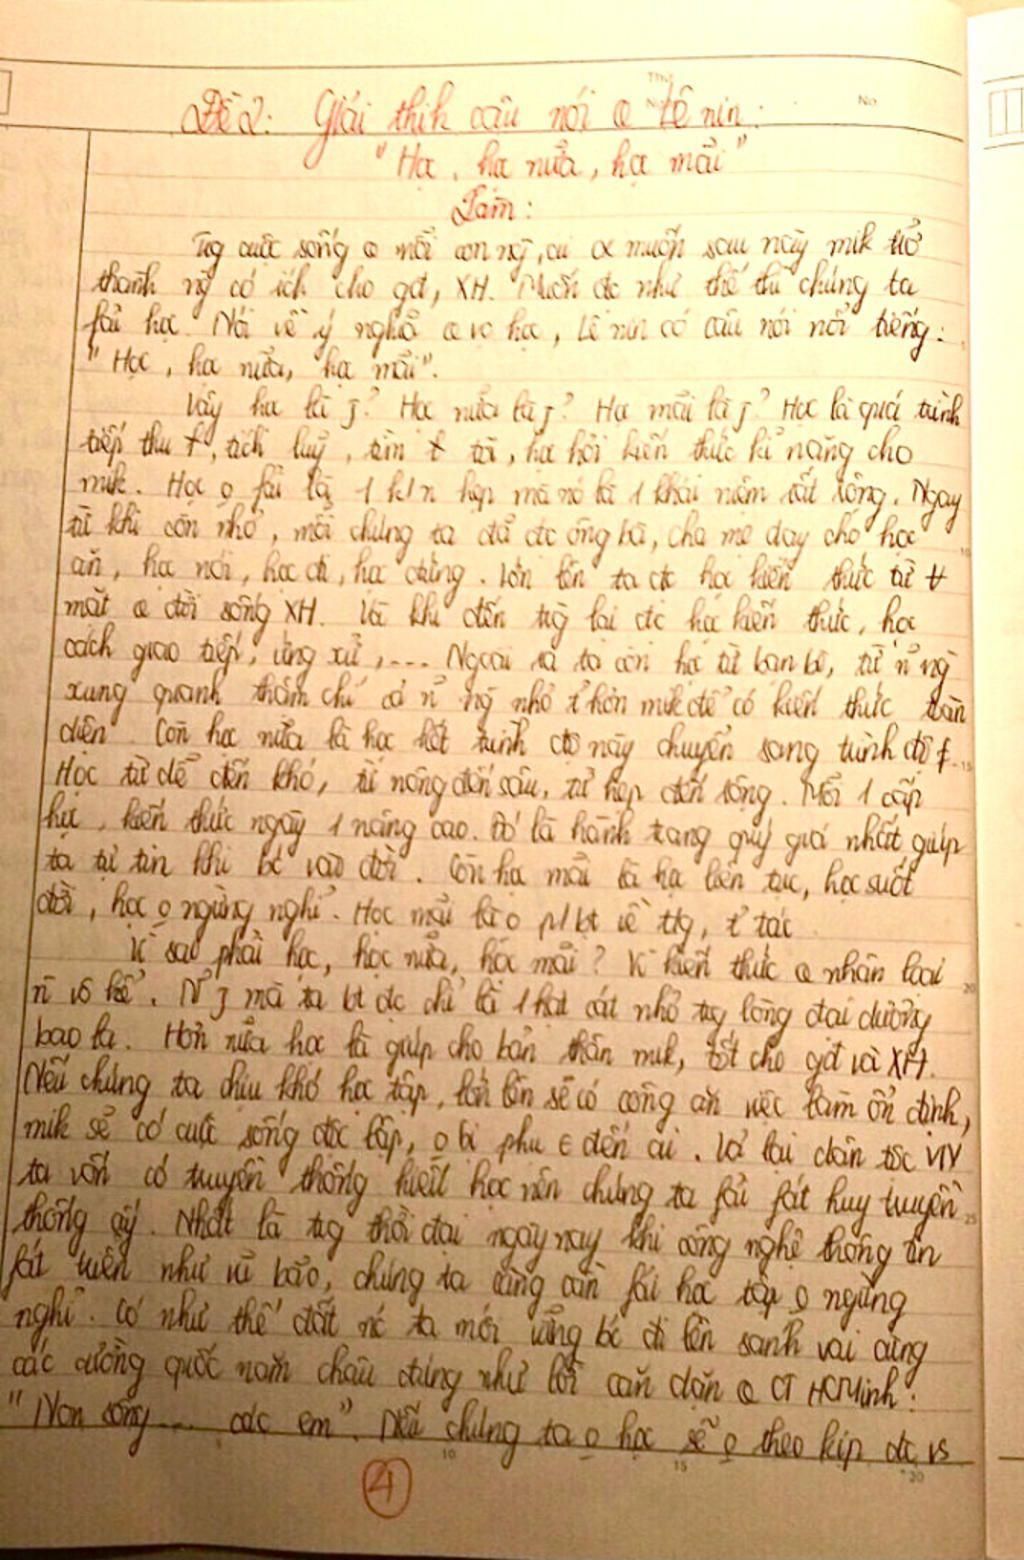 Đề 2: Giải thik câu nói @ Lê nin:
"Học, học nữa, học mãi"
Làm:
Tlg cuộc sống @ mỗi con ng`, ai muốn sau này mik trở
thành ng` có ích cho gđ, XH. Muốn đc như thế thì chúng ta
fải học. Nói về ý nghĩa @ vc học, Lê nin có câu nói nổi tiếng:
"Học, học nữa, học mãi".
Vậy học là j? Học nữa là j? Học mãi là j? Học là quá trình
tiếp thu, tích luỹ, tìm tòi, học hỏi kiến thức kĩ năng cho
mik. Học o fải là 1 k/n hẹp mà nó là 1 khái niệm rất rộng. Ngay
từ khi còn nhỏ, mỗi chúng ta đã đc ông bà, cha mẹ dạy cho học
ăn, học nói, học đi, học đứng. Lớn lên ta đc học kiến thức từ
mặt @ đời sống XH. Và khi đến trg lại đc học kiến thức, học
cách giao tiếp, ứng xử,... Ngoài ra ta còn học từ bạn bè, từ n~ ng`
xung quanh thậm chí cả n~ ng` nhỏ t' hơn mik để có kiến thức toàn
diện. Còn học nữa là học hết trình độ này chuyển sang trình độ
Học từ dễ đến khó, từ nông đến sâu, từ hẹp đến rộng. Mỗi 1 cấp
học, kiến thức ngày 1 nâng cao. Đó là hành trang quý giá nhất giúp
ta tự tin khi bc vào đời. Còn học mãi là học liên tục, học suốt
đời, học o ngừng nghỉ. Học mãi là o p/bt về tg, t' tác
Vì sao phải học, học nữa, học mãi? Vì kiến thức @ nhân loại
n` vô kể. N~ j mà ta bt đc chỉ là 1 hạt cát nhỏ tlg lòng đại dương
bao la. Hơn nữa học là giúp cho bản thân mik, tốt cho gđ và XH.
Nếu chúng ta chịu khó học tập, lớn lên sẽ có công ăn việc làm ổn định,
mik sẽ có cuộc sống độc lập, o bị phụ € đến ai. Vả lại dân tộc VN
ta vốn có truyền thống hiếu học nên chúng ta fải fát huy truyền
thống ấy. Nhất là tlg thời đại ngày nay khi công nghệ thông tin
fát triển như vũ bão, chúng ta càng cần fải học tập o ngừng
nghỉ. Có như thế đất nc ta mới vững bc đi lên sánh vai cùng
các cường quốc năm châu đúng như lời căn dặn @ CT HCMinh:
"Non sông... các em". Nếu chúng ta o học sẽ o theo kịp đc vs
4